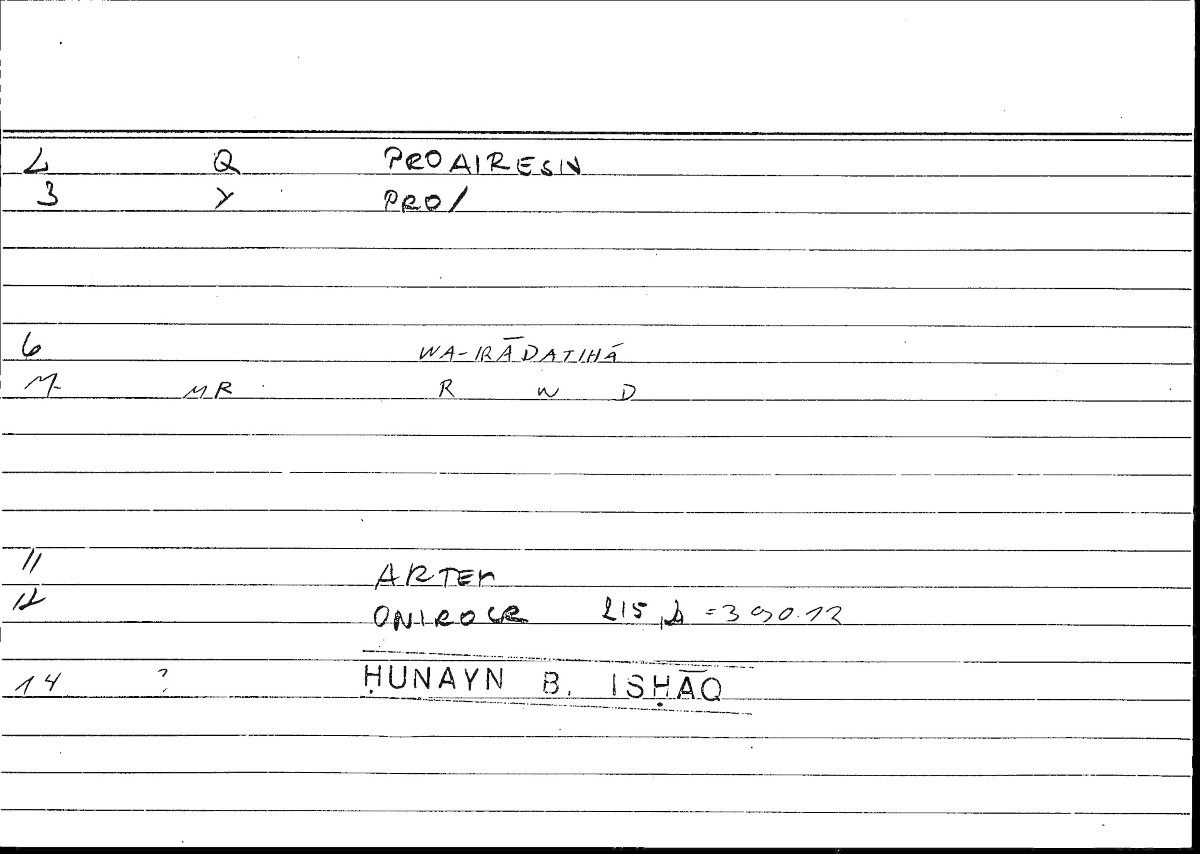 2 Q PROAIRESIN
3 Y PRO/
6 WA-IRĀDATIHĀ
M- MR R W D
11 ARTEM
12 ONIROCR 215, = 390.12
14 ? ḤUNAYN B. ISḤĀQ